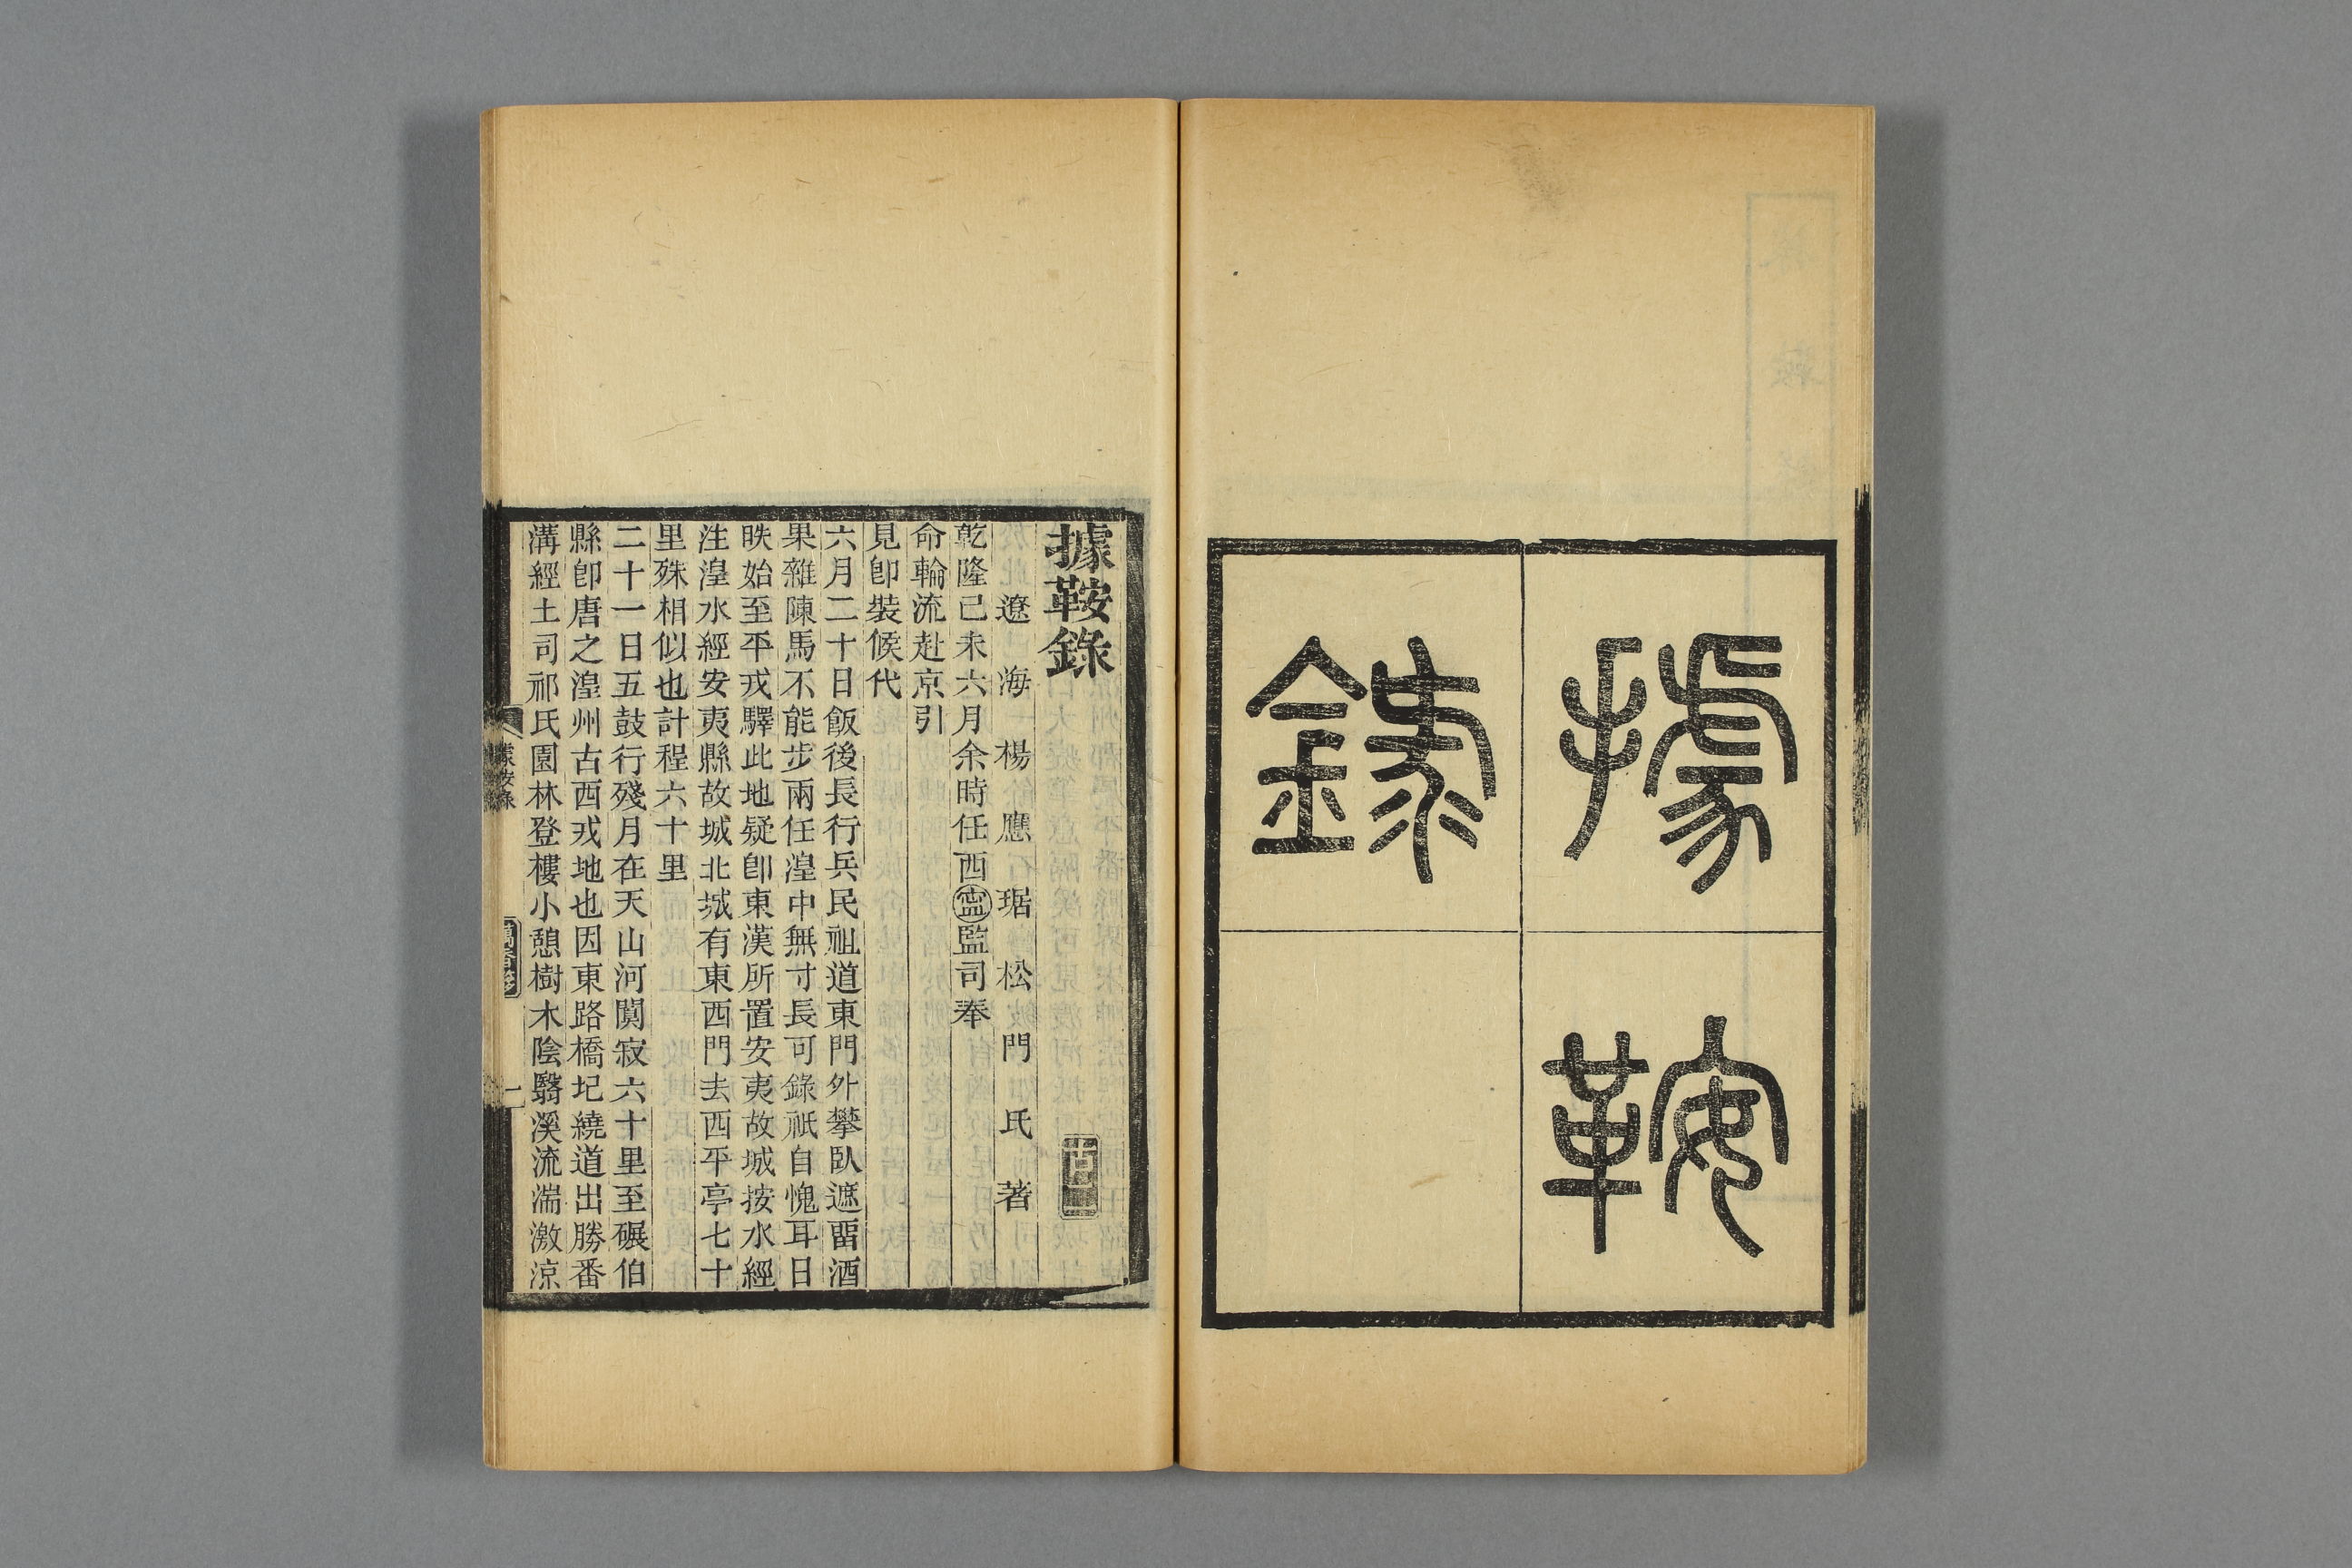 據鞍
錄
據鞍錄
遼海楊應琚松門氏著
乾隆己未六月余時任西寍監司奉
命輪流赴京引
見卽裝候代
六月二十日飯後長行兵民祖道東門外攀臥遮畱酒
果雜陳馬不能步兩任湟中無寸長可錄祇自愧耳日
昳始至平戎驛此地疑卽東漢所置安夷故城按水經
注湟水經安夷縣故城北城有東西門去西平亭七十
里殊相似也計程六十里
二十一日五鼓行殘月在天山河闃寂六十里至碾伯
縣卽唐之湟州古西戎地也因東路橋圮繞道出勝番
溝經土司祁氏園林登樓小憩樹木陰翳溪流湍激涼
據鞍錄
一